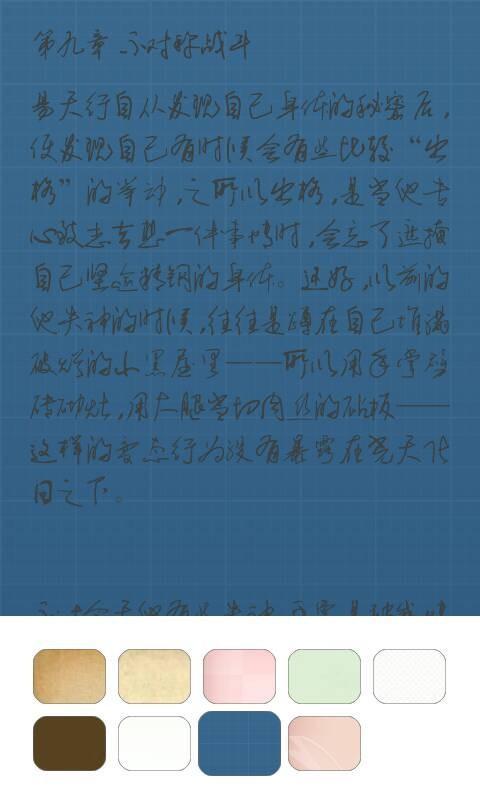 第九章 不对称战斗
易天行自从发现自己身体的秘密后，
便发现自己有时候会有些比较“出
格”的举动，之所以出格，是当他专
心致志去想一件事情时，会忘了遮掩
自己坚逾精钢的身体。还好，以前的
他失神的时候，往往是蹲在自己堆满
破烂的小黑屋里——所以用手掌劈
砖砌灶，用大腿当切肉丝的砧板——
这样的变态行为没有暴露在光天化
日之下。